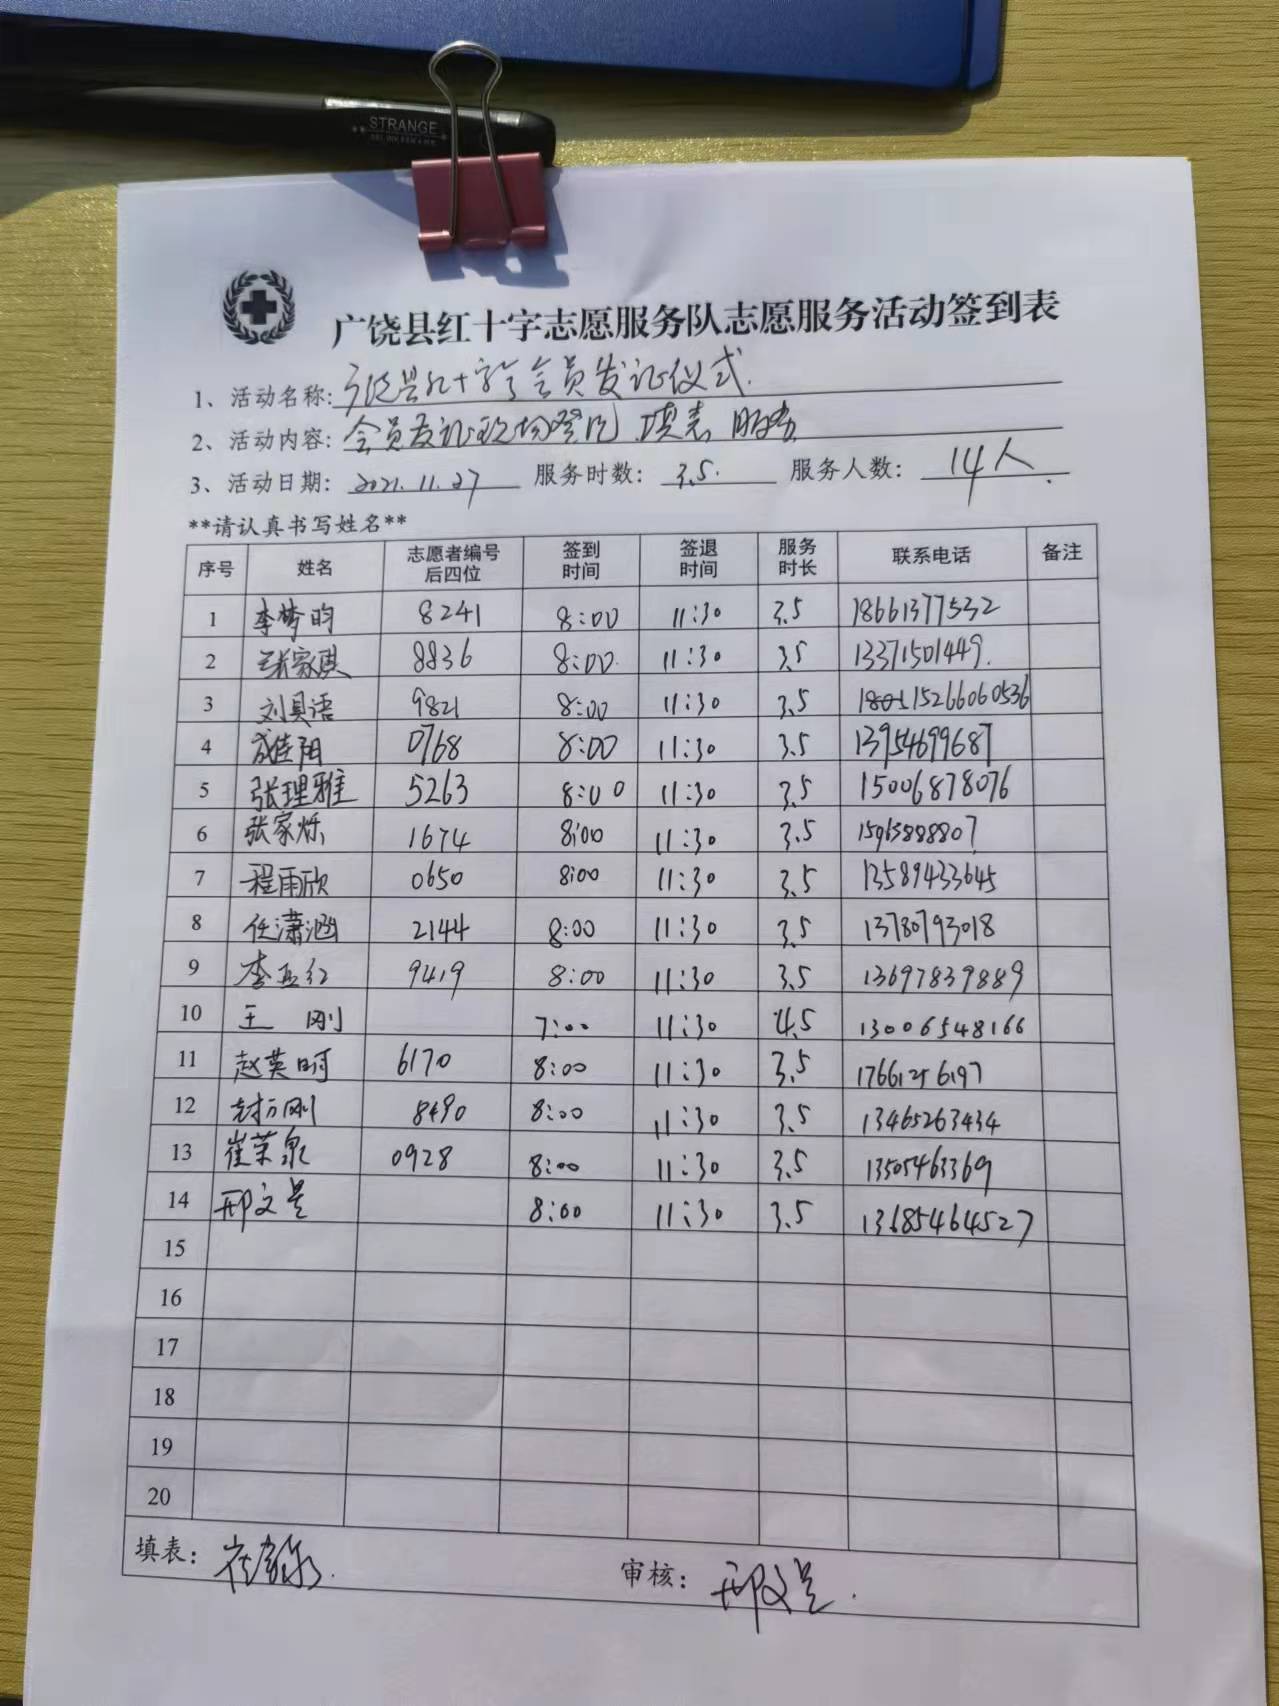 STRANGE
广饶县红十字志愿服务队志愿服务活动签到表
1、活动名称: 广饶县红十字会会员发证仪式.
2、活动内容: 会员发证现场登记 填表 服务
3、活动日期: 2021.11.27 服务时数: 3.5. 服务人数: 14人.
**请认真书写姓名**
序号 姓名 志愿者编号后四位 签到时间 签退时间 服务时长 联系电话 备注
1 李梦昀 8241 8:00 11:30 3.5 18661377532
2 张家琪 8836 8:00 11:30 3.5 13371501449.
3 刘具语 9821 8:00 11:30 3.5 15266060536
4 成佳阳 0768 8:00 11:30 3.5 13954699687
5 张理雅 5263 8:00 11:30 3.5 15006878076
6 张家烁 1674 8:00 11:30 3.5 15963888807
7 程雨欣 0650 8:00 11:30 3.5 13589433645
8 任潇涵 2144 8:00 11:30 3.5 13780793018
9 李亚红 9419 8:00 11:30 3.5 13697839889
10 王 刚 7:00 11:30 4.5 13006548166
11 赵英明 6170 8:00 11:30 3.5 17661256197
12 刚 8490 8:00 11:30 3.5 13465263434
13 崔荣泉 0928 8:00 11:30 3.5 13505463369
14 邢文昌 8:00 11:30 3.5 13685464527
15
16
17
18
19
20
填表: 崔荣泉. 审核: 邢文昌.